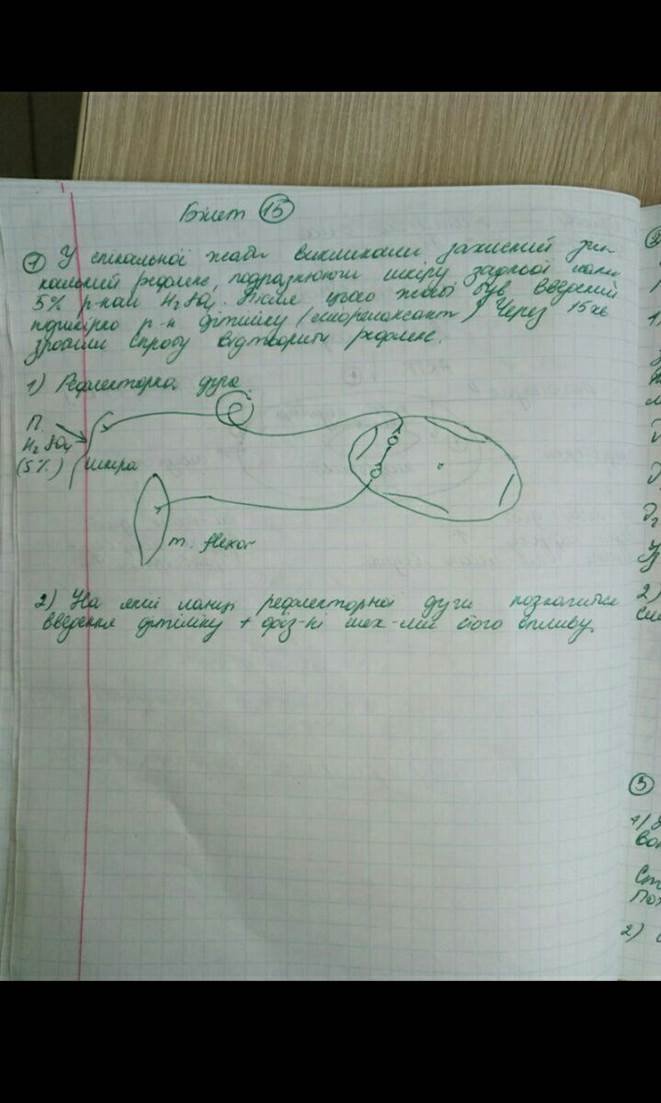 Білет 15
1 У спінальної жаби викликали захисний зги-
нальний рефлекс, подразнюючи шкіру задньої лапи
5% р-ном H₂SO₄. Після цього жабі був введений
підшкірно р-н дітіліну (міорелаксант). Через 15 хв
зробили спробу відтворити рефлекс.
1) Рефлекторна дуга.
П.
H₂SO₄
(5%) шкіра
m. flexor
2) На якій ланці рефлекторної дуги позначиться
введення дітіліну + фіз-ні мех-ми його впливу.
3
2)